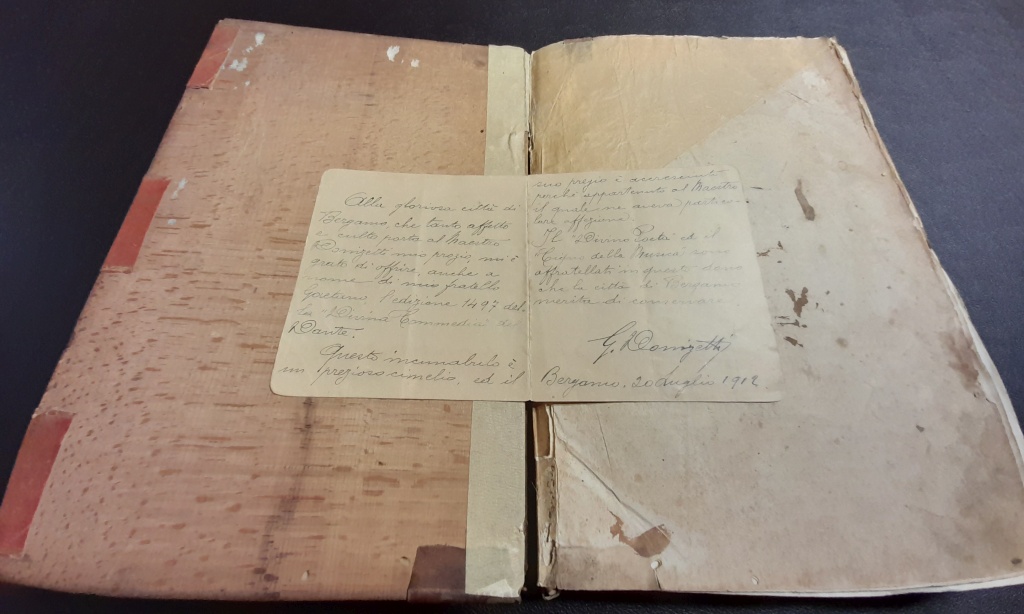 Alla gloriosa città di
Bergamo che tanto affetto
e culto porta al Maestro
Donizetti mio prozio, mi è
grato di offrire, anche a
nome di mio fratello
Gaetano, l'edizione 1497 del-
la "Divina Commedia" di
Dante.
Questo incunabulo è
un prezioso cimelio, ed il
suo pregio è accresciuto
perché appartenuto al Maestro
il quale ne aveva partico-
lare affezione.
Il "Divino Poeta" ed il
"Cigno della Musica" sono
affratellati in questo dono
che la città di Bergamo
merita di conservare.
G. Donizetti
Bergamo. 20 Luglio 1912